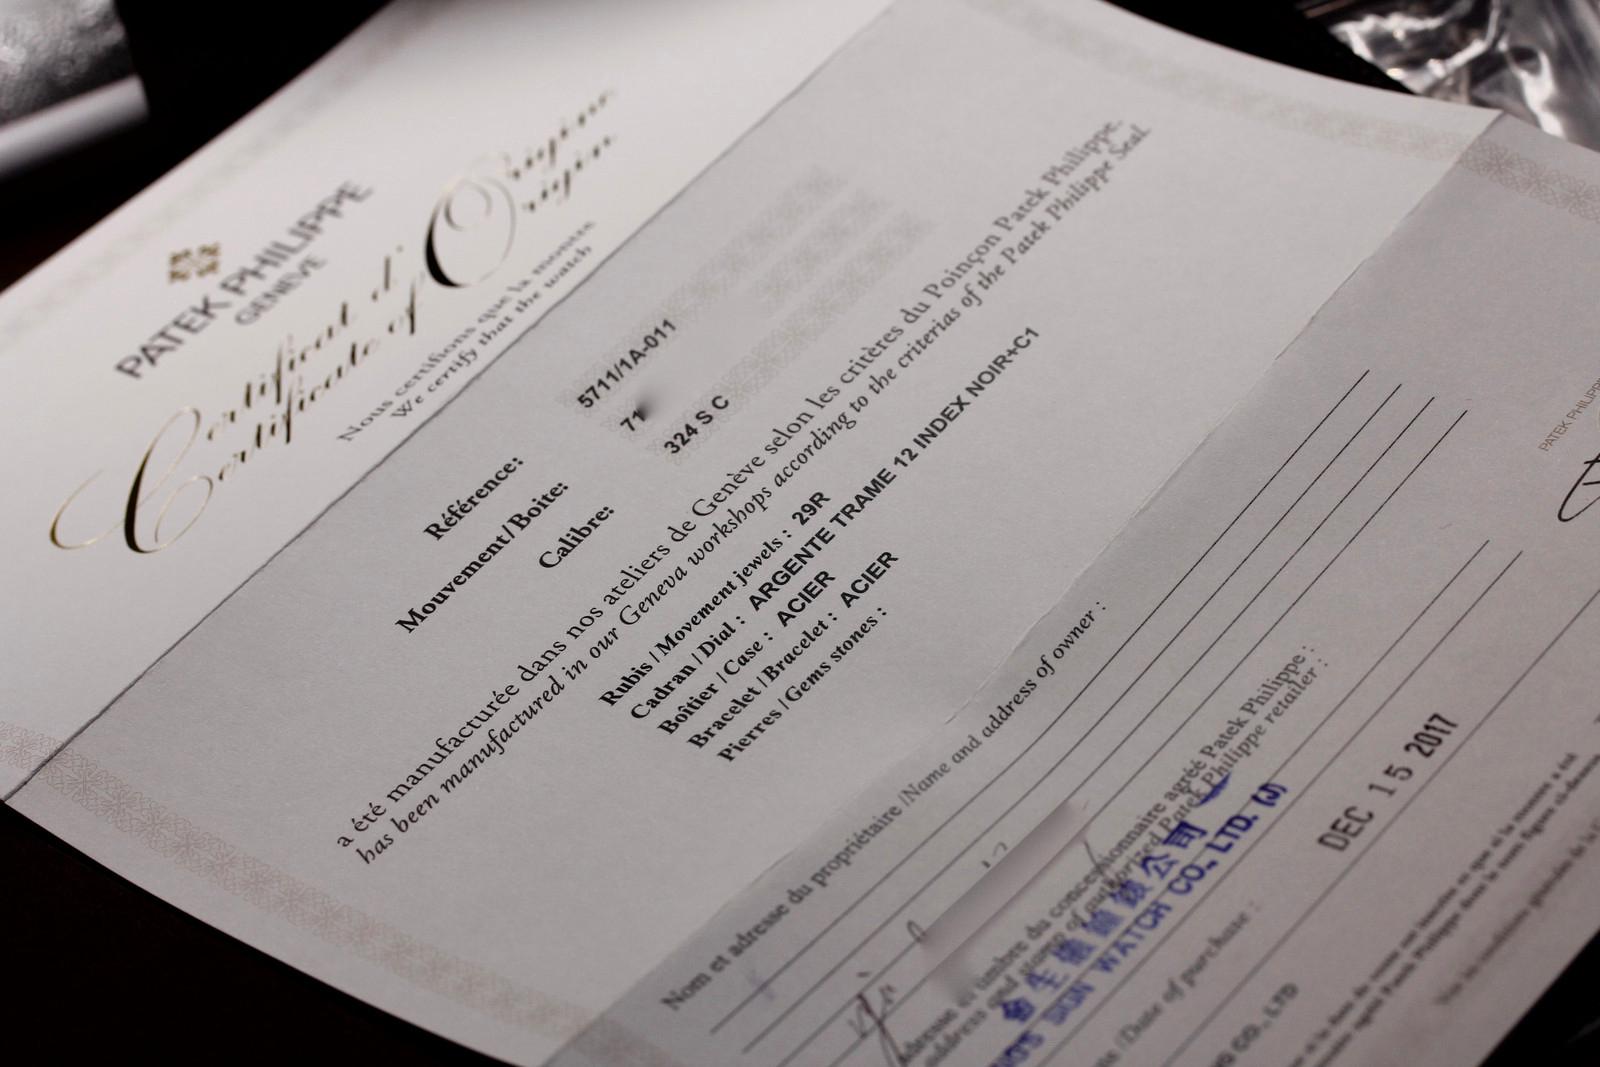 PATEK PHILIPPE
GENEVE
Certificat d'Origine
Certificate of Origin
Nous certifions que la montre
We certify that the watch
Référence: 5711/1A-011
Mouvement/Boite: 71
Calibre: 324 S C
a été manufacturée dans nos ateliers de Genève selon les critères du Poinçon Patek Philippe.
has been manufactured in our Geneva workshops according to the criterias of the Patek Philippe Seal.
Rubis / Movement jewels : 29R
Cadran / Dial : ARGENTE TRAME 12 INDEX NOIR+C1
Boîtier / Case : ACIER
Bracelet / Bracelet : ACIER
Pierres / Gems stones :
Nom et adresse du propriétaire /Name and address of owner :
PATEK PHILIPP
et timbre du concessionnaire agréé Patek Philippe :
address and stamp of authorized Patek Philippe retailer :
生 鐘 錶 公 司
SIGN WATCH CO., LTD. (J)
/Date of purchase :
DEC 15 2017
CO., LTD